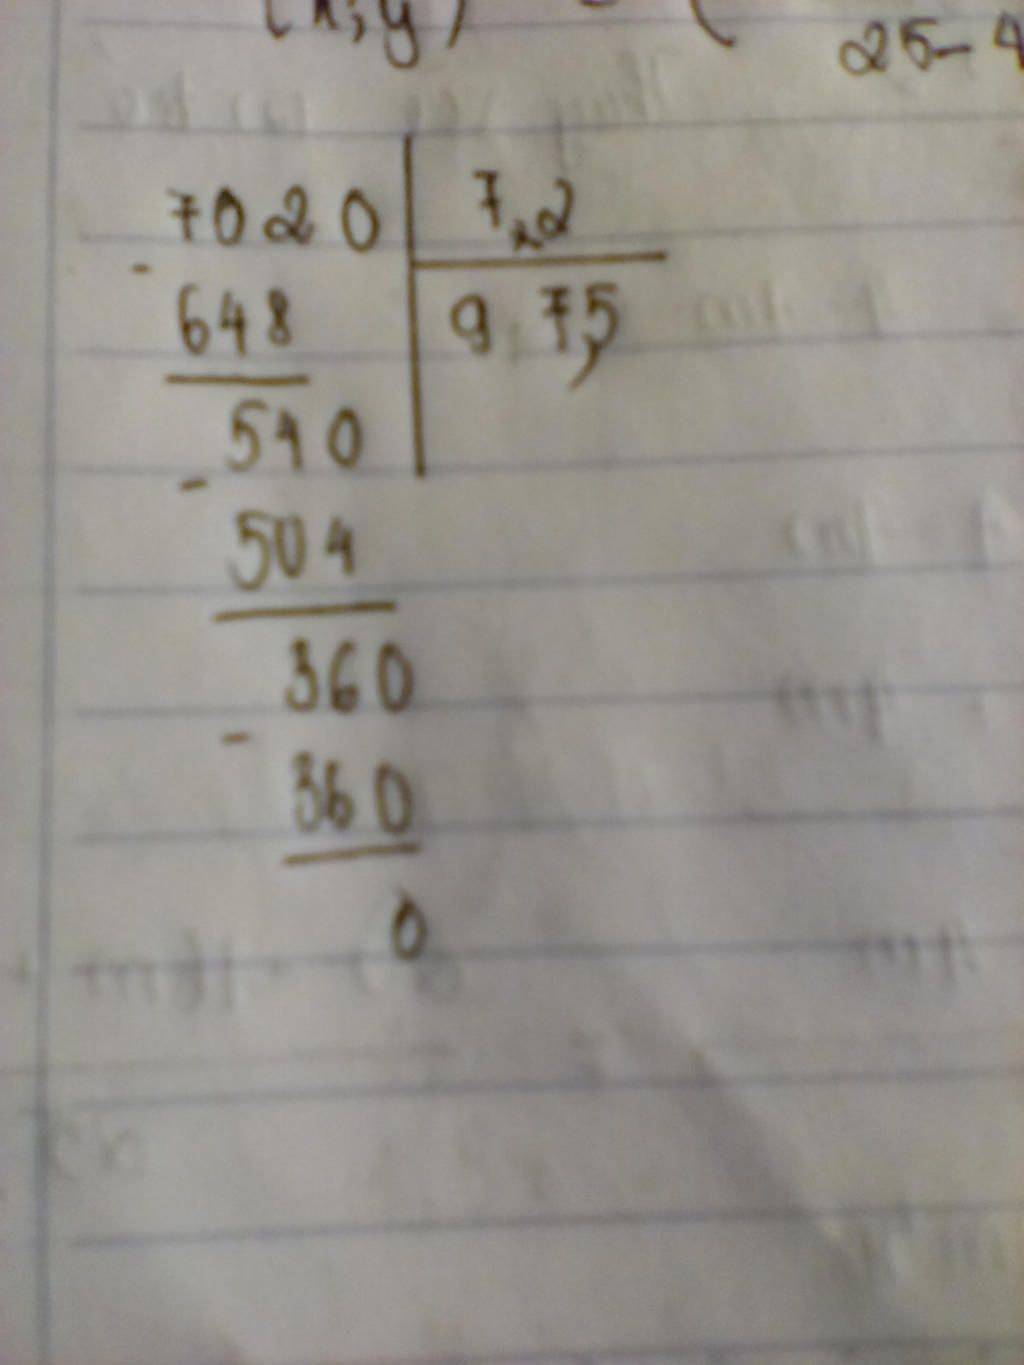 (x; y) = (
25-4
7020 7,2
- 648 9,75
540
- 504
360
- 360
0